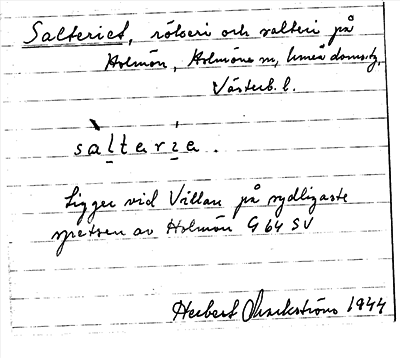 Salteriet, rökeri och salteri på
Holmön, Holmöns sn, Umeå doms.tg,
Västerb. l.
sàltarìa.
Ligger vid Villan på sydligaste
spetsen av Holmön G 64 SV
Herbert Markström 1944